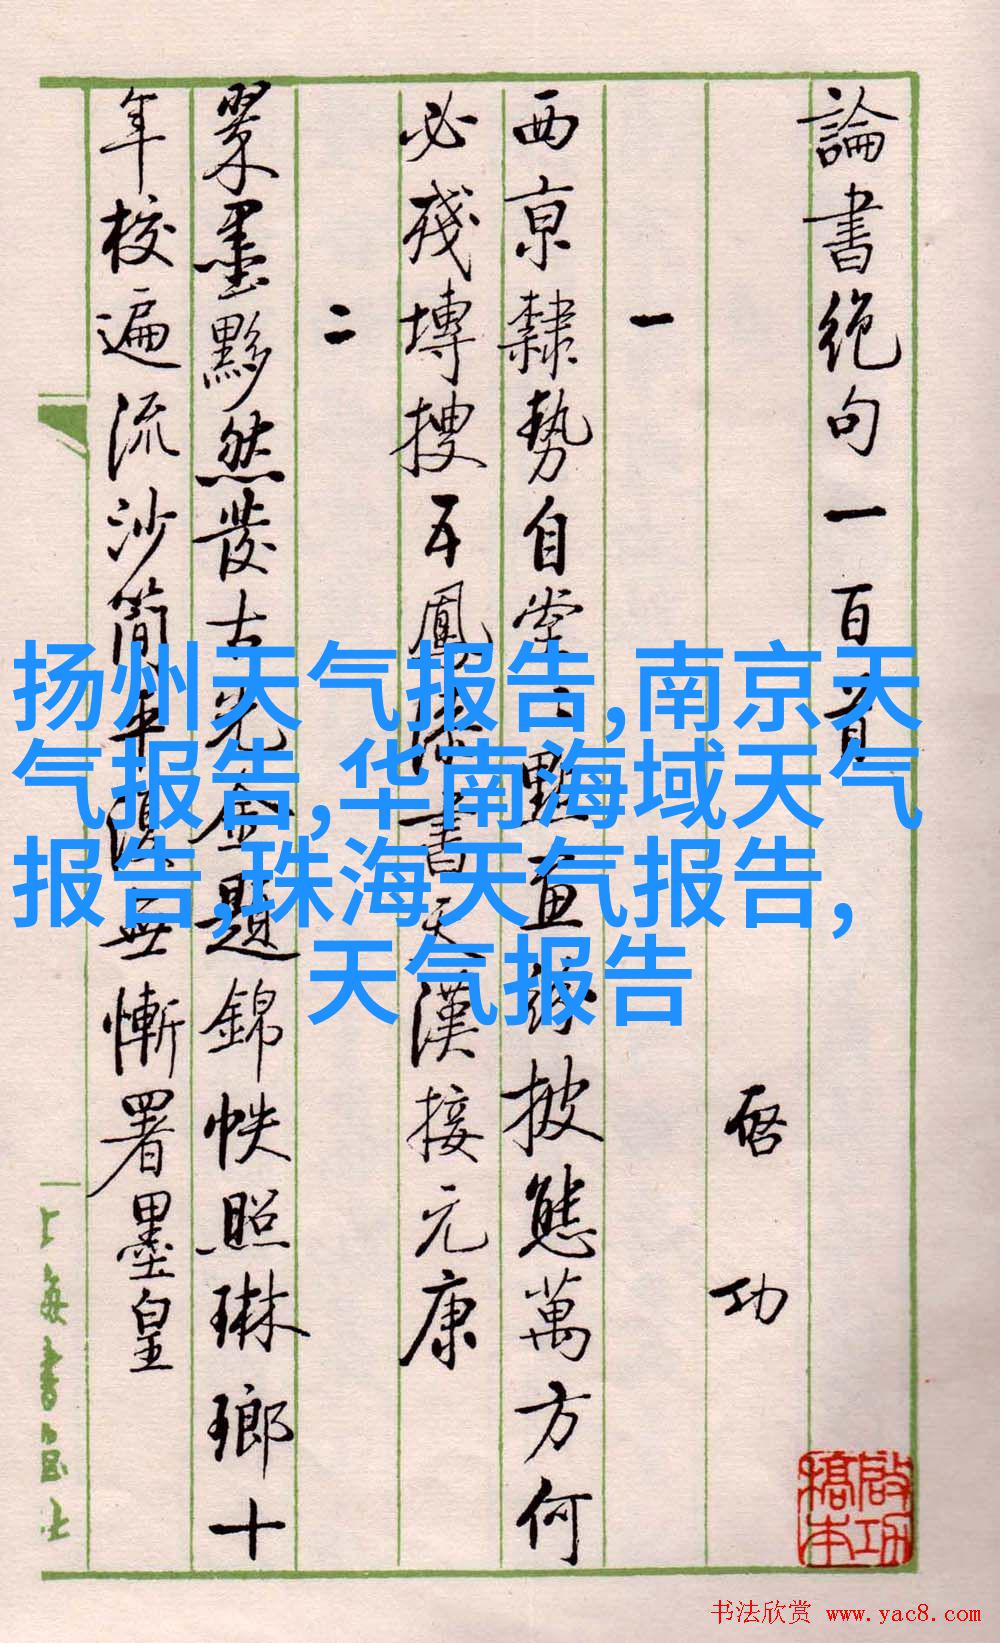 論書絶句一百首
啓功
一
西京隸勢自堂堂點畫紛披態萬方何
必殘塼搜五鳳漆書天漢接元康
二
翠墨黟然發古光金題錦帙照琳瑯十
年校遍流沙簡平復無慚署墨皇
上海書畫社
啟功
稿本
扬州天气报告,南京天
气报告,华南海域天气
报告,珠海天气报告,
天气报告
书法欣赏 www.yac8.com